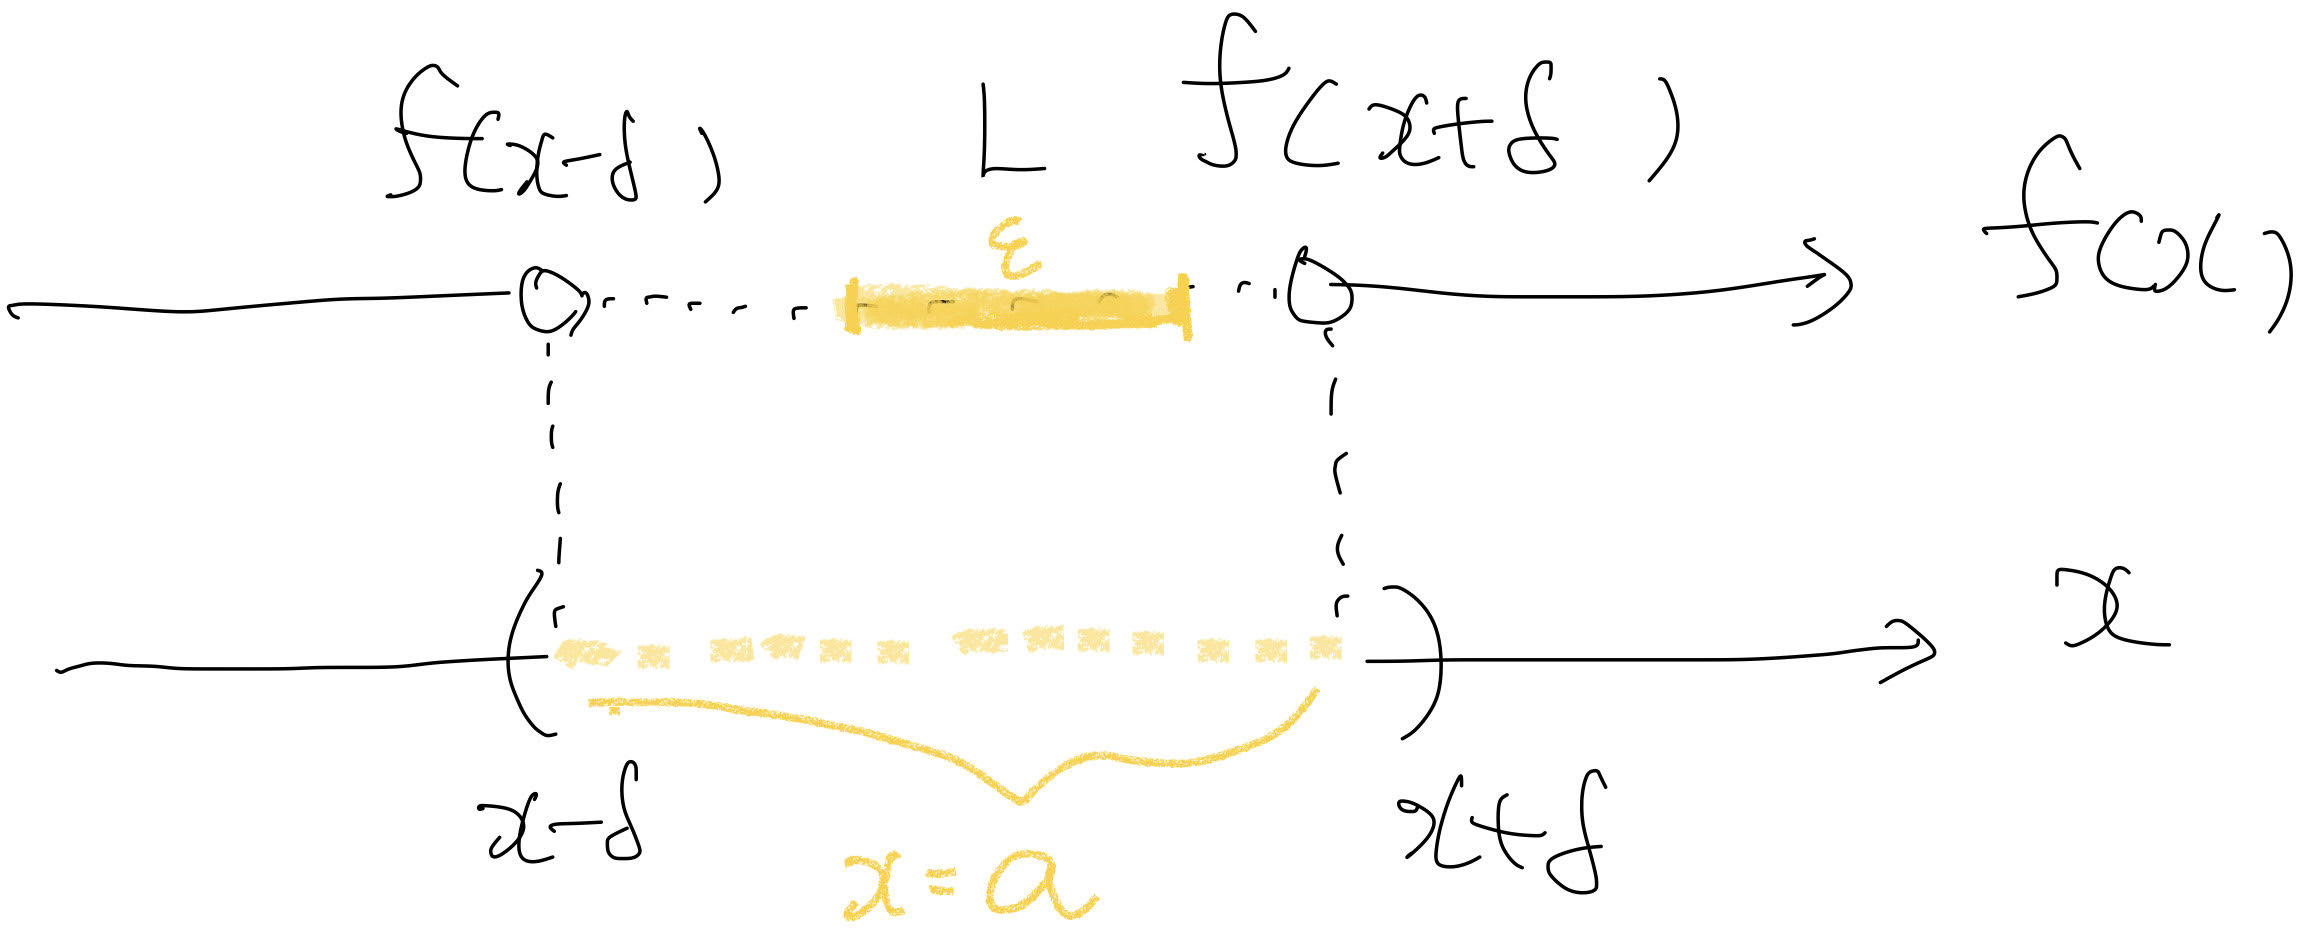 f(x-δ) L f(x+δ)
ε
f(x)
x
x-δ x+δ
x=a